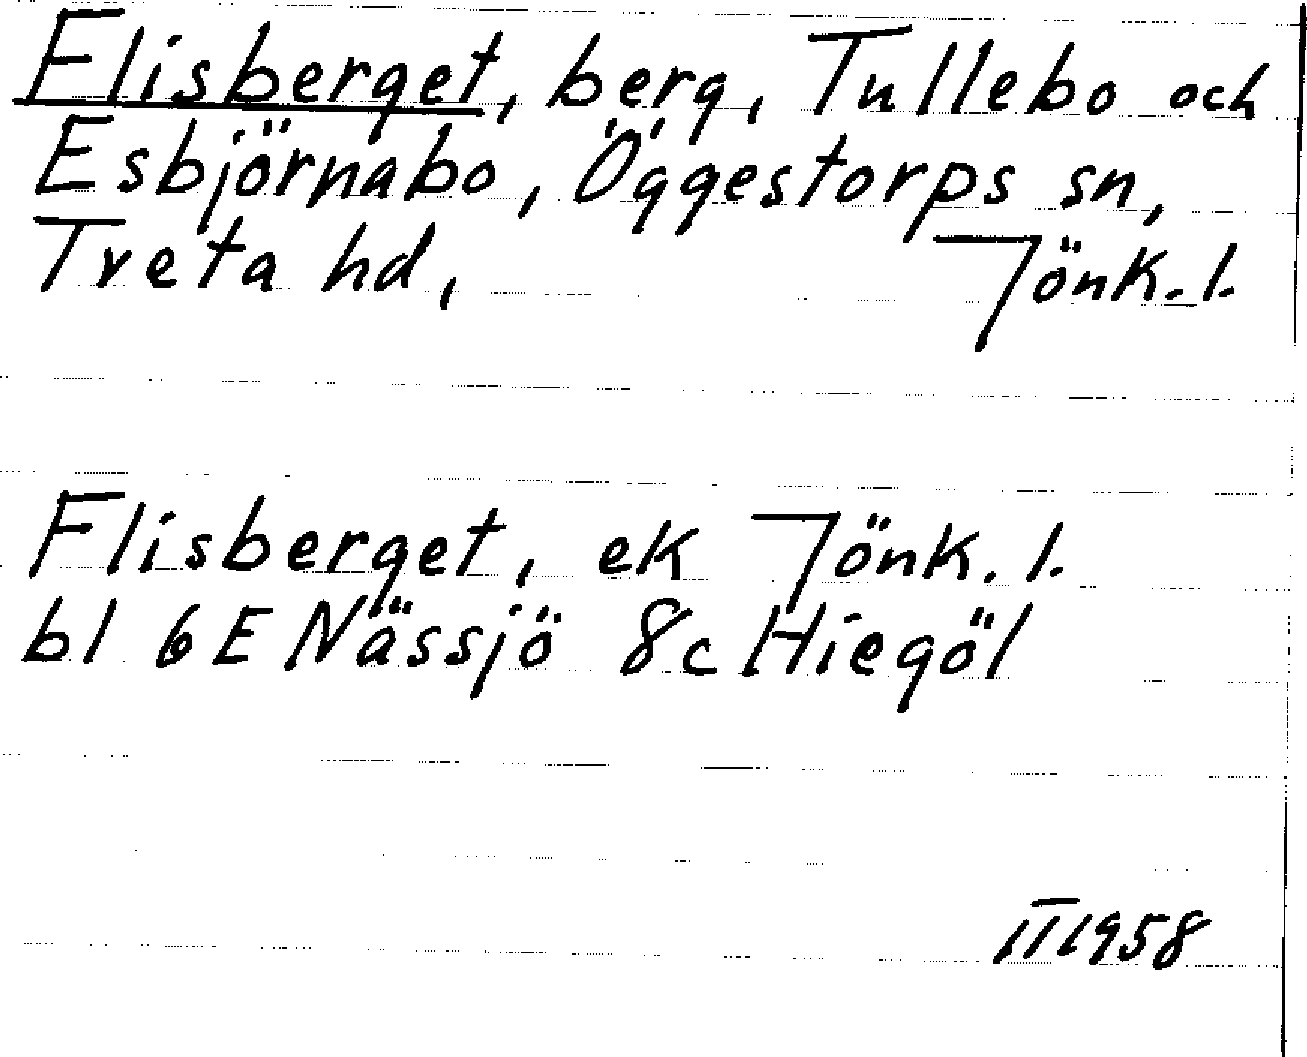 Flisberget, berg, Tullebo och
Esbjörnabo, Öggestorps sn,
Tveta hd, Jönk. l.
Flisberget, ek Jönk. l.
bl 6E Nässjö 8c Hiegöl
1958